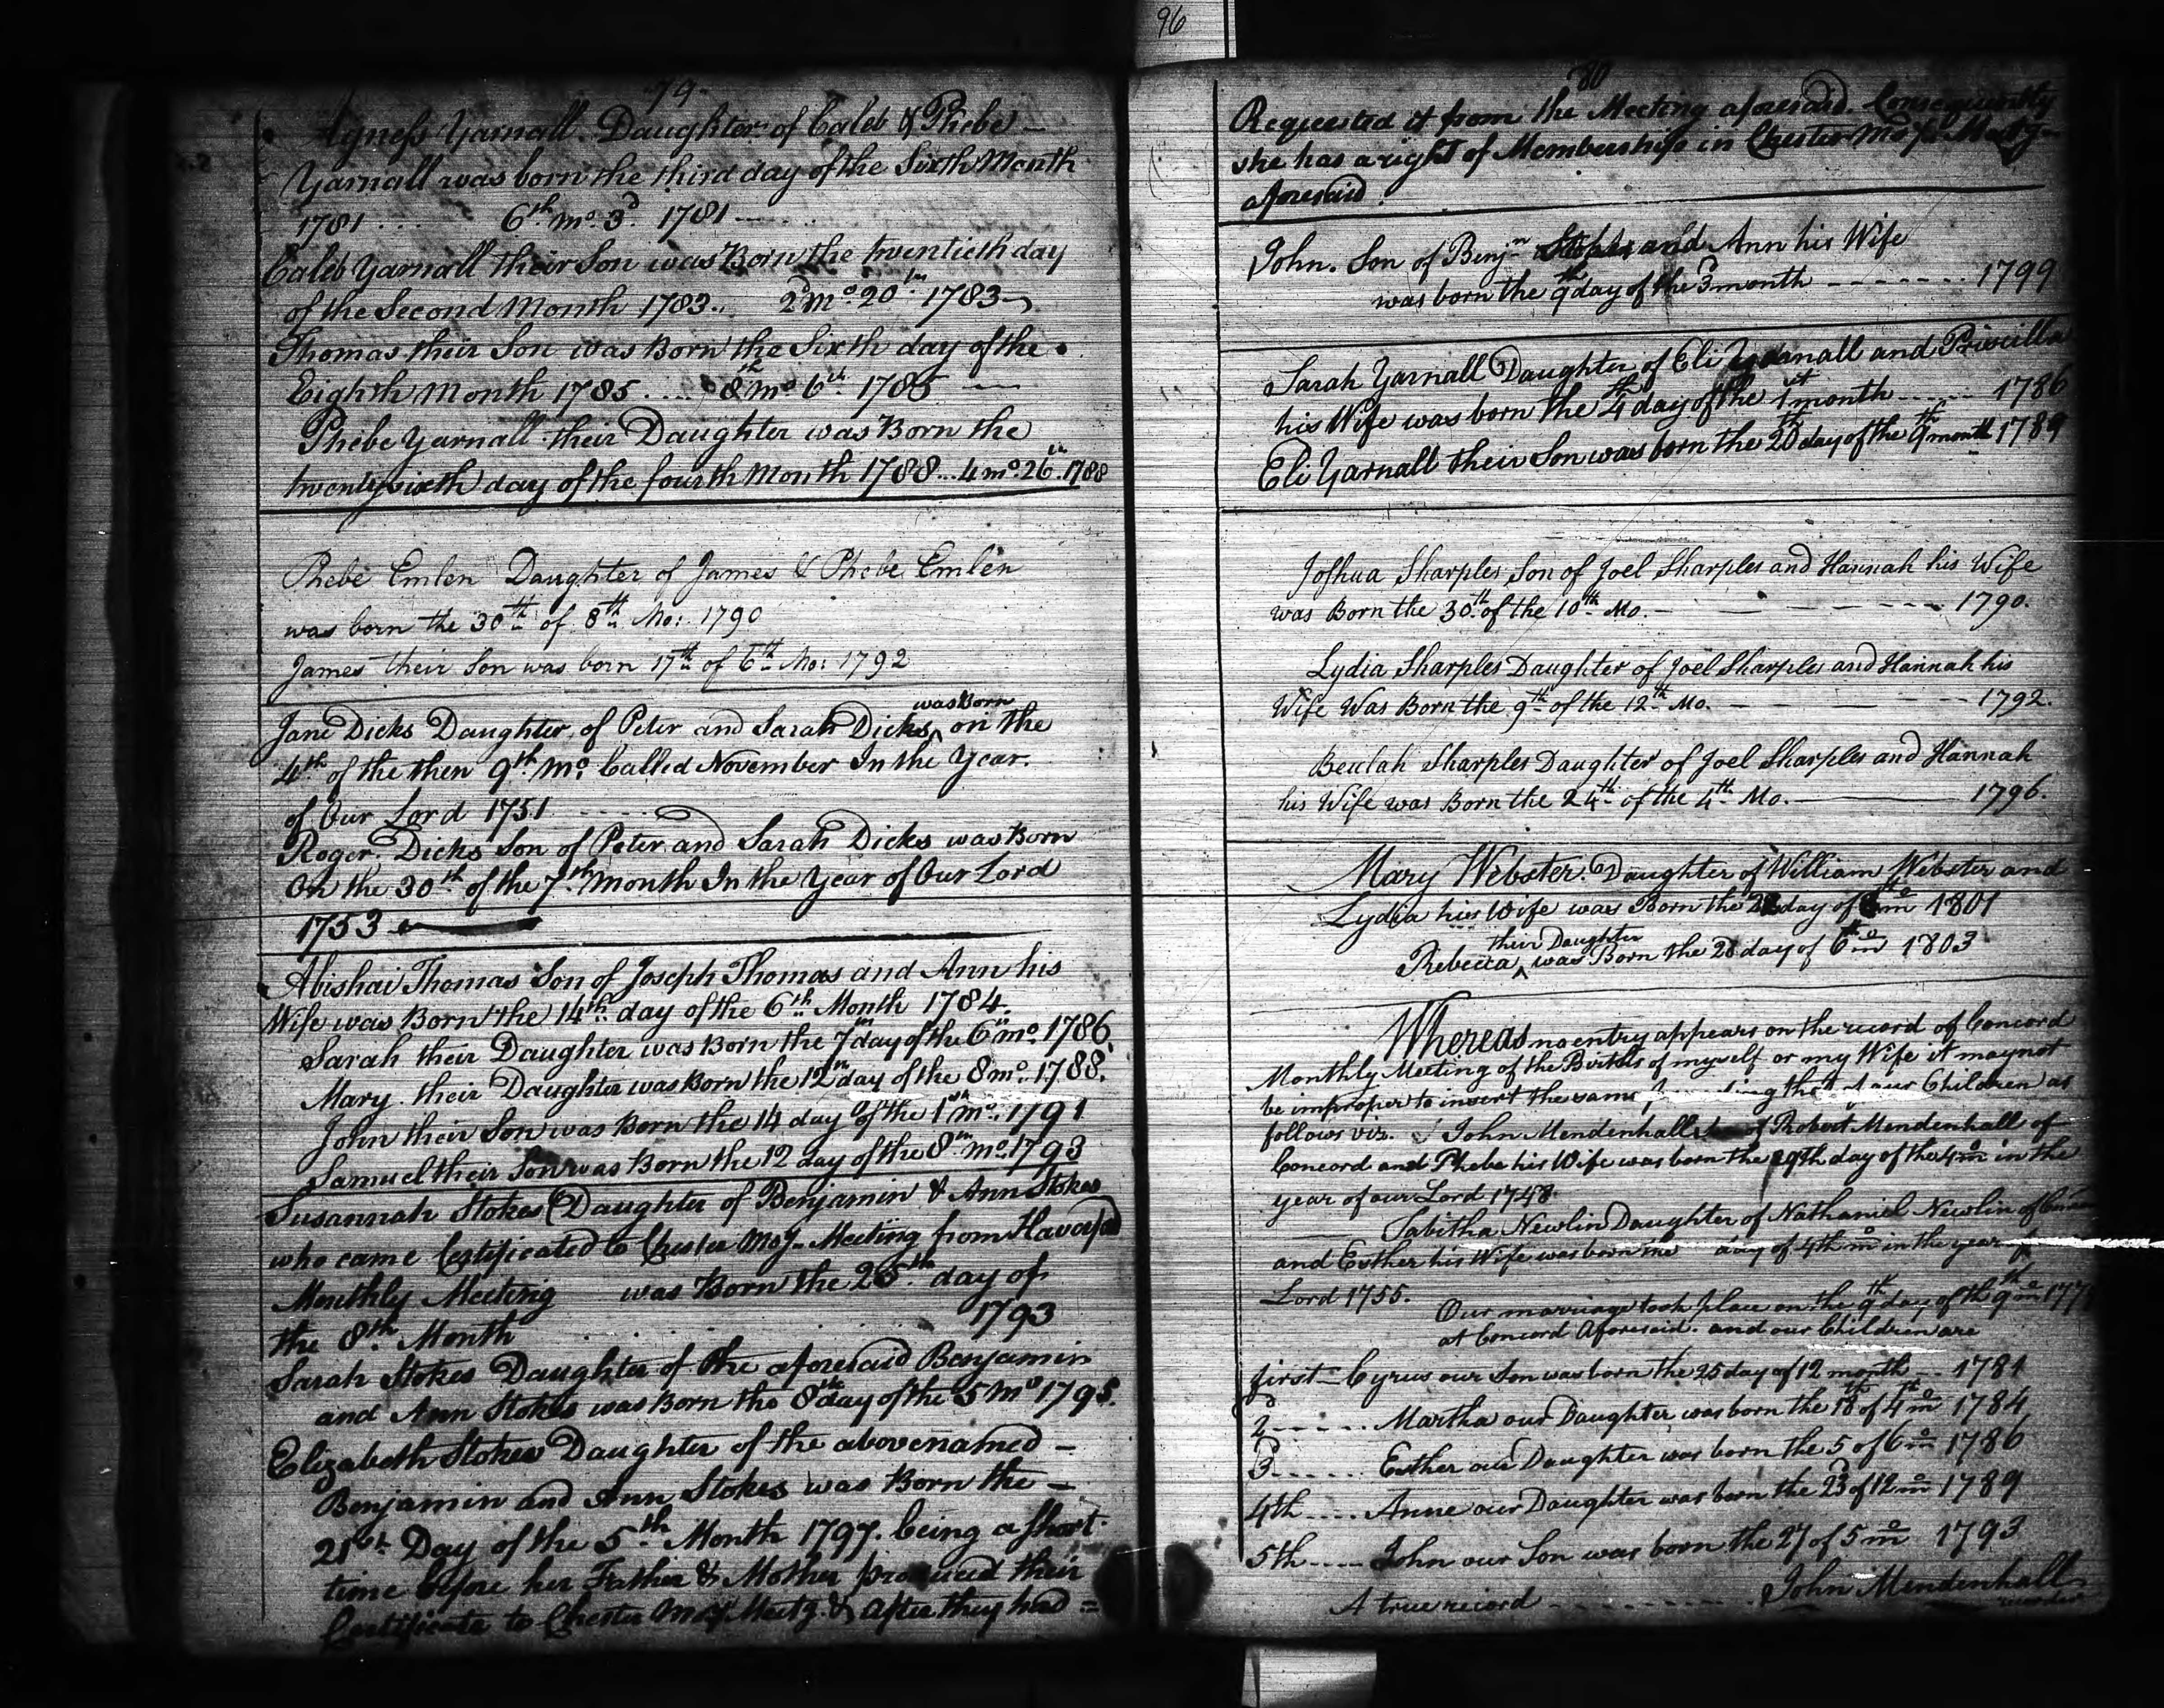 96
79
Agness Yarnall. Daughter of Caleb & Phebe
Yarnall was born the third day of the Sixth Month
1781 ... 6th mo. 3d. 1781
Caleb Yarnall their Son was Born the twentieth day
of the Second Month 1783.. 2d mo. 20th 1783
Thomas their Son was Born the Sixth day of the
Eighth Month 1785 .... 8th mo 6th 1785
Phebe Yarnall their Daughter was Born the
twenty sixth day of the fourth Month 1788... 4 mo. 26th. 1788
Phebe Emlen Daughter of James & Phebe Emlen
was born the 30th of 8th Mo: 1790
James their Son was born 17th of 6th Mo: 1792
was Born
Jane Dicks Daughter of Peter and Sarah Dicks ^ on the
4th of the then 9th. Mo. Called November In the Year.
of Our Lord 1751
Roger. Dicks Son of Peter and Sarah Dicks was Born
On the 30th of the 7th Month In the Year of Our Lord
1753
Abishai Thomas Son of Joseph Thomas and Ann his
Wife was Born the 14th day of the 6th Month 1784.
Sarah their Daughter was Born the 7th day of the 6th mo. 1786.
Mary. their Daughter was Born the 12th day of the 8 mo. 1788.
John their Son was Born the 14 day of the 1st mo. 1791
Samuel their Son was Born the 12 day of the 8th mo. 1793
Susannah Stokes Daughter of Benjamin & Ann Stokes
who came Certificated to Chester Moy- Meeting from Haverford
Monthly Meeting was Born the 26th day of
the 8th. Month 1793
Sarah Stokes Daughter of the aforesaid Benjamin
and Ann Stokes was Born the 8th day of the 5 Mo 1795.
Elizabeth Stokes Daughter of the abovenamed
Benjamin and Ann Stokes was Born the
21st Day of the 5th Month 1797. being a short
time before her Father & Mother produced their
Certificate to Chester Moy Meetg. & after they had =
80
Requested it from the Meeting aforesaid. Consequently
she has a right of Membership in Chester Moy. Meetg-
aforesaid.
John. Son of Benjn Stokes and Ann his Wife
was born the 9th day of the 3d month ------- 1799
Sarah Yarnall Daughter of Eli Yarnall and Priscilla
his Wife was born the 4th day of the 1st month ..... 1786
Eli Yarnall their Son was born the 20th day of the 9th month 1789
Joshua Sharples Son of Joel Sharples and Hannah his Wife
was Born the 30th of the 10th Mo. - - - - - - 1790.
Lydia Sharples Daughter of Joel Sharples and Hannah his
Wife Was Born the 9th of the 12th Mo. - - - - - 1792.
Beulah Sharples Daughter of Joel Sharples and Hannah
his Wife was Born the 24th of the 4th Mo. ——— 1796.
Mary Webster. Daughter of William Webster and
Lydia his Wife was Born the day of mo 1801
their Daughter
Rebecca ^ was Born the 28 day of 6th mo 1803
Whereas no entry appears on the record of Concord
Monthly Meeting of the Births of myself or my Wife it may not
be improper to insert the same, that of our Children as
follows viz. John Mendenhall of Robert Mendenhall of
Concord and Phebe his Wife was born the 29th day of the 4 mo in the
year of our Lord 1748.
Tabitha Newlin Daughter of Nathaniel Newlin of
and Esther his Wife was born the day of 4th mo in the year of
Lord 1755.
Our marriage took place on the 9th day of th 9th mo
at Concord Aforesaid. and our Children are
first - Cyrus our Son was born the 25 day of 12 month ... 1781
2d ...... Martha our Daughter was born the 18th of 4th mo 1784
3d ...... Esther our Daughter was born the 5 of 6 mo 1786
4th .... Anne our Daughter was born the 23d of 12 mo 1789
5th ..... John our Son was born the 27 of 5 mo 1793
A true record ........ John Mendenhall
recorder